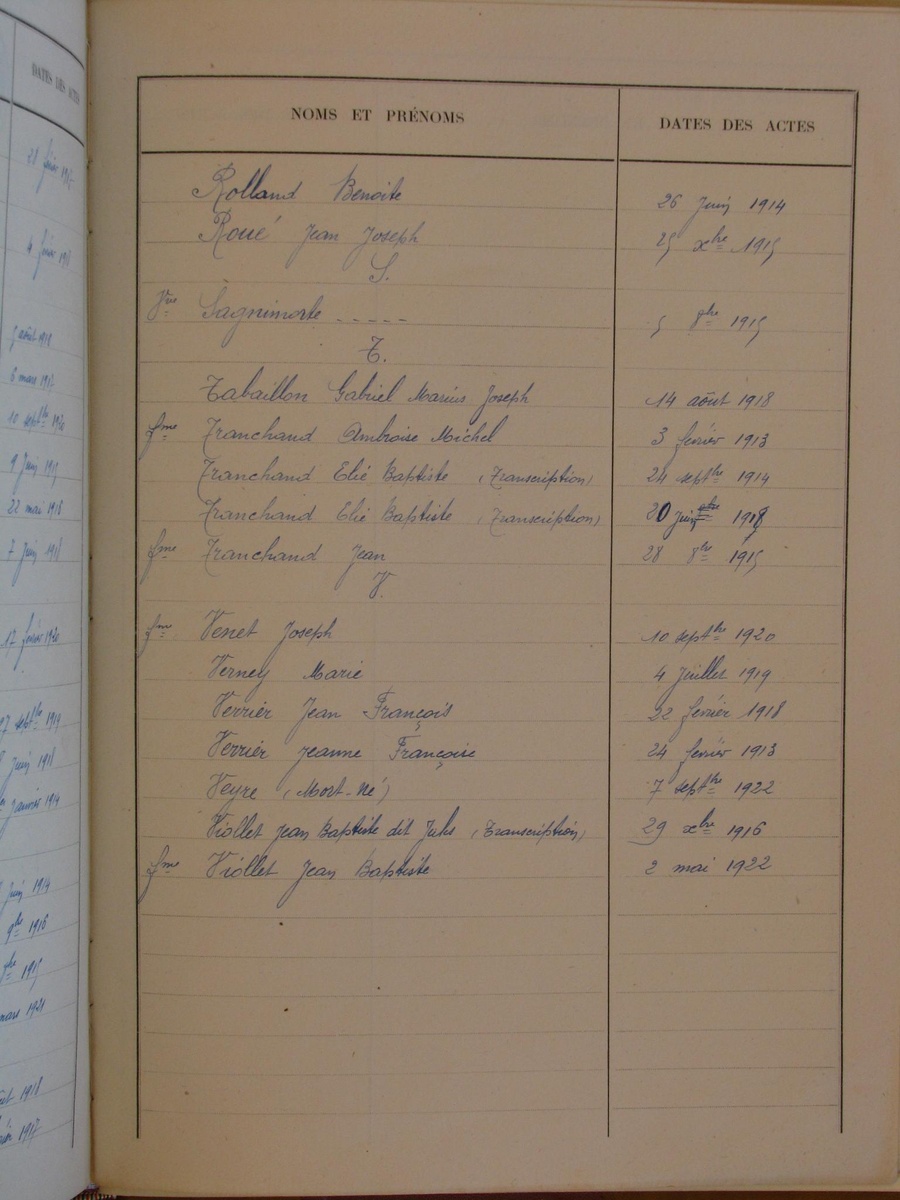 DATES DES ACTES
28 février 1917
4 février 1918
5 août 1918
6 mars 1917
10 septbre 1920
9 Juin 1915
22 mai 1918
7 Juin 1918
17 février 1920
27 septbre 1919
Juin 1918
Janvier 1914
Juin 1914
9bre 1916
1915
mars 1921
août 1918
1917
NOMS ET PRÉNOMS DATES DES ACTES
Rolland Benoite 26 Juin 1914
Roué Jean Joseph 25 xbre 1915
S.
Vve Sagnimorte ----- 5 8bre 1915
T.
Tabaillon Gabriel Marius Joseph 14 août 1918
fme Tranchand Ambroise Michel 3 février 1913
Tranchand Elié Baptiste (Transcription) 24 septbre 1914
Tranchand Elié Baptiste (Transcription) 20 Juin 1918
fme Tranchand Jean 28 8bre 1915
V.
fme Venet Joseph 10 septbre 1920
Verney Marie 4 Juillet 1919
Verrier Jean François 22 février 1918
Verrier Jeanne Françoise 24 février 1913
Veyre (Mort-Né) 7 septbre 1922
Viollet Jean Baptiste dit Jules (Transcription) 29 xbre 1916
fme Viollet Jean Baptiste 2 mai 1922